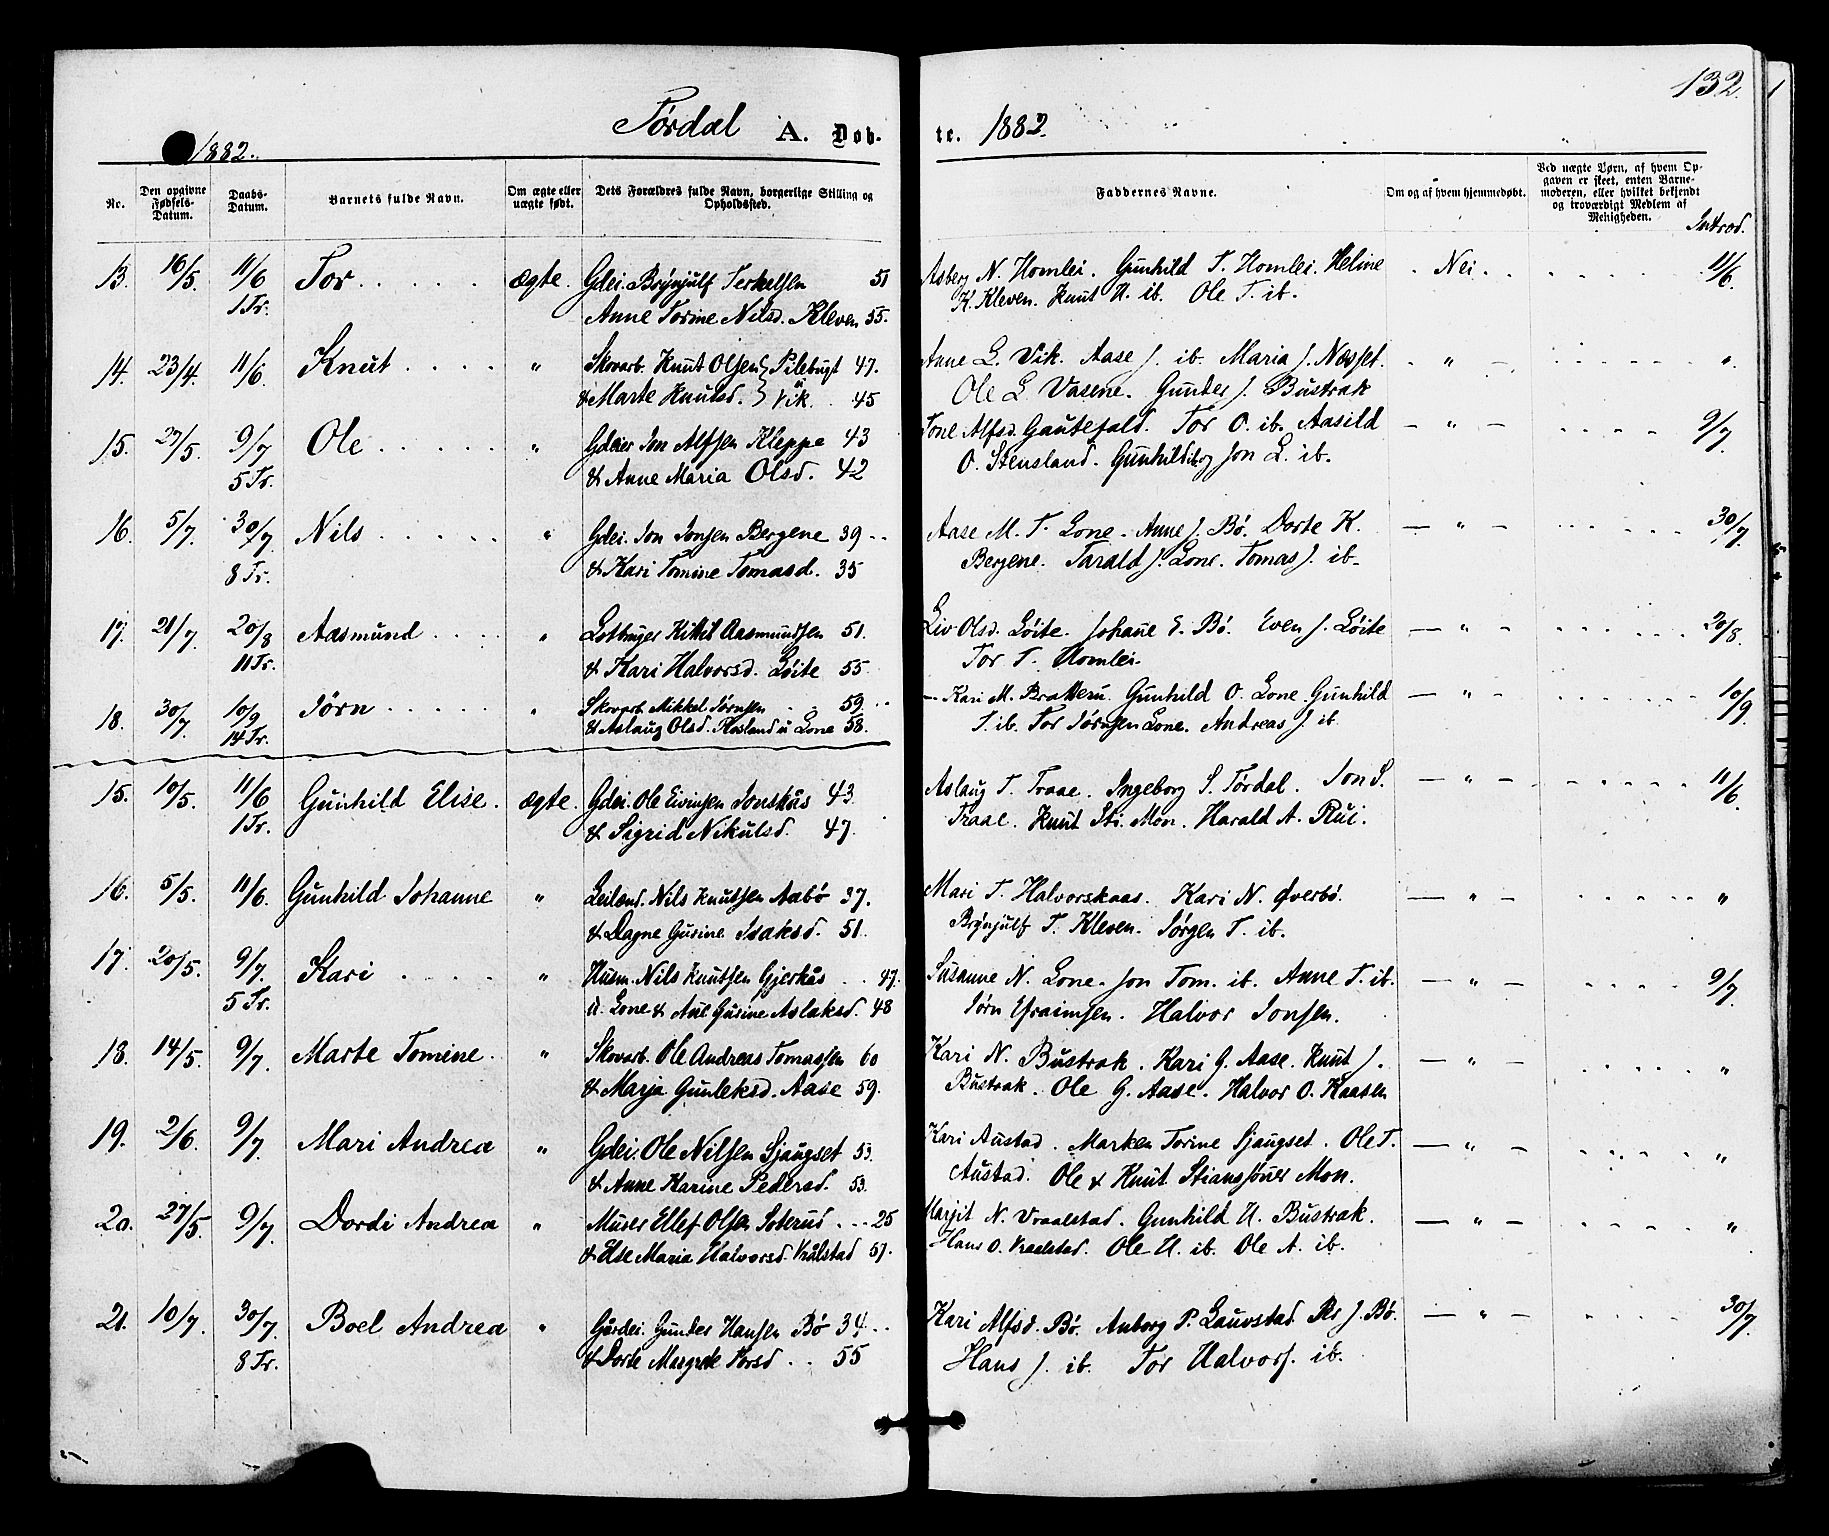 132.
Tørdal A. Døb-
te. 1882.
1882.
Nr.
Den opgivne Fødsels-Datum.
Daabs-Datum.
Barnets fulde Navn.
Om ægte eller uægte født.
Dets Forældres fulde Navn, borgerlige Stilling og Opholdssted.
Faddernes Navne.
Om og af hvem hjemmedøbt.
Ved uægte Børn, af hvem Opgaven er skeet, enten Barnemoderen, eller hvilket bekjendt og troværdigt Medlem af Menigheden.
Introd.
13. 16/5. 11/6 Tor ægte. Gdei. Brynjulf Terkelsen 51 Asberg N. Homlei. Gunhild T. Homlei. Heline Nei. 11/6.
1 Tr. Anne Torine Nilsd. Kleven 55. K. Kleven. Knut U. ib. Ole T. ib.
14. 23/4. 11/6. Knut " Skovarb. Knut Olsen Pilebugt 47. Anne L. Vik. Aase J. ib. Maria J. Næsset. " "
& Marte Knutsd. u Vik. 45 Ole L. Vasene. Gunder J. Bustrak
15. 27/5. 9/7 Ole " Gdeier Jon Alfsen Kleppe 43 Tone Alfsd. Gautefald. Tor O. ib. Aasild " 9/7
5 Tr. & Anne Maria Olsd. 42 O. Stensland. Gunhild og Jon L. ib.
16. 5/7. 30/7 Nils " Gdei. Jon Jonsen Bergene 39 Aase M. T. Lone. Anne J. Bø. Dorte K. " 30/7.
8 Tr. & Kari Tomine Tomasd. 35 Bergene. Tarald J. Lone. Tomas J. ib.
17. 21/7 20/8 Aasmund " Kittil Aasmundsen 51. Liv Olsd. Løite. Johane E. Bø. Even J. Løite " 20/8.
11 Tr. & Kari Halvorsd. Løite 55 Tor T. Homlei.
18. 30/7 10/9 Jørn " Skovarb. Mikkel Jørnsen 59 Kari M. Bratteru. Gunhild O. Lone. Gunhild " 10/9
14 Tr. & Aslaug Olsd. Røsland u Lone 58. T. ib. Tor Jørnsen Lone. Andreas J. ib.
15. 10/5. 11/6 Gunhild Elise. ægte. Gdei. Ole Eivinsen Jonskås 43 Aslaug T. Traae. Ingeborg S. Tørdal. Jon S. " 11/6.
1 Tr. & Sigrid Nikulsd. 47. Traae. Knut Sti. Mon. Harald A. Rui.
16. 5/5. 11/6. Gunhild Johanne " Leilænd. Nils Knutsen Aabø 37. Mari T. Halvorskaas. Kari N. Øverbø. " "
& Dagne Gurine Isaksd. 51. Brynjulf T. Kleven. Jørgen T. ib.
17. 20/5. 9/7. Kari " Husm. Nils Knutsen Gjerkås 47. Susanne N. Lone. Jon Tom. ib. Anne T. ib. " 9/7.
5 Tr. u. Lone & Ane Gurine Aslaksd. 48 Jørn Efraimsen. Halvor Jonsen.
18. 14/5. 9/7. Marte Tomine. " Skovarb. Ole Andreas Tomassen 60 Kari N. Bustrak. Kari G. Aase. Knut J. " "
& Marja Gunleksd. Aase 59. Bustrak. Ole G. Aase. Halvor O. Kaasen
19. 2/6. 9/7. Mari Andrea " Gdei. Ole Nilsen Sjaugset 53. Kari Austad. Marken Torine Sjaugset. Ole T. " "
& Anne Karine Pedersd. 53. Austad. Ole & Knut Stianssøner Mon.
20. 27/5. 9/7. Dordi Andrea " Murer Ellef Olsen Soterud 25 Marjit N. Vraalstad. Gunhild U. Bustrak. " "
& Else Maria Halvorsd. Vrålstad 57. Hans O. Vraalstad. Ole U. ib. Ole A. ib.
21. 10/7. 30/7. Boel Andrea " Gårdei. Gunder Hansen Bø 34 Kari Alfsd. Bø. Anborg P. Lauvstad. Per J. Bø. " 30/7.
8 Tr. & Dorte Margrete Torsd 55 Hans J. ib. Tor Halvors. ib.